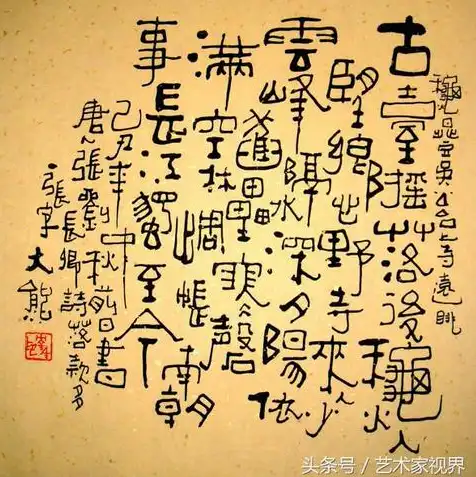 穐日登吴公台上寺遠眺
古臺摇落後龝入
望鄉心野寺来人少
雲峰隔水深夕陽依
舊壘寒磬
满空林惆悵南朝
事長江獨至今
己丑年中秋前日書
唐人張劉長卿詩落款多
張字大熊
头条号 / 艺术家视界